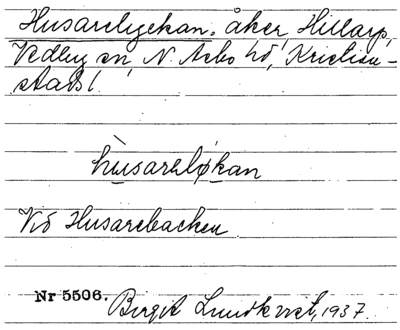 Husarelyckan, åker, Hillarp,
Vedby sn N. Åsbo hd, Kristian-
stads l.
hùsarelø̀kan
Vid Husarebacken
Nr 5506. Birgit Lundkvist, 1937.